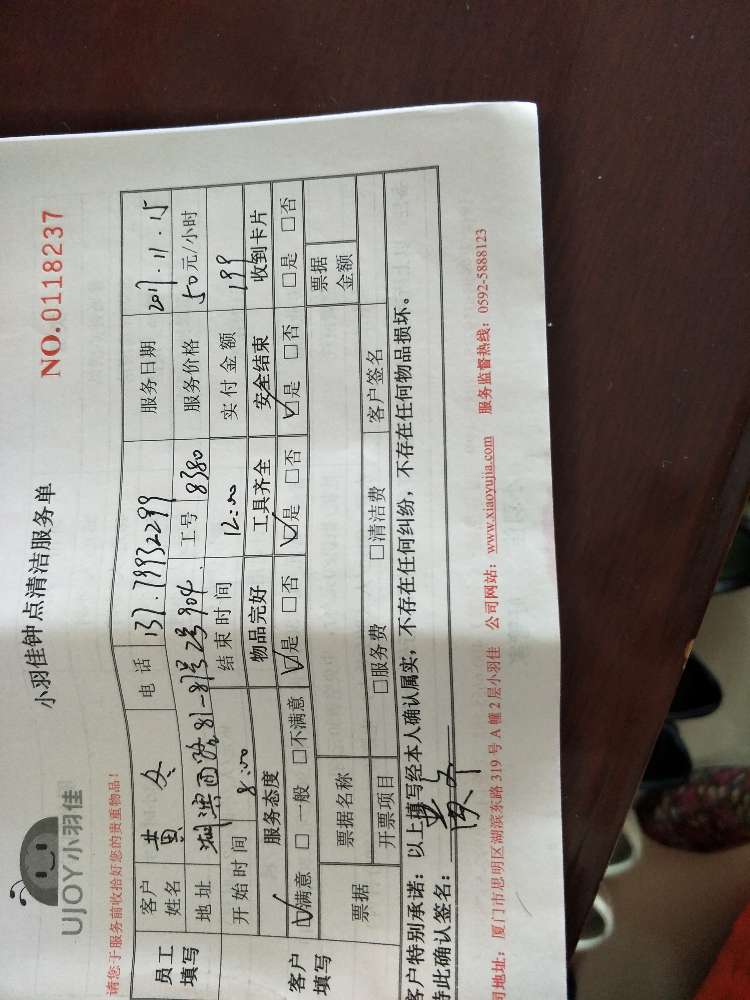 UJOY小羽佳
小羽佳钟点清洁服务单
NO.0118237
请您于服务前收拾好您的贵重物品!
员工填写
客户姓名 黄 电话 137.79932299 服务日期 2017.11.15
地址 81-81号2号904. 工号 8380 服务价格 50元/小时
开始时间 8:00 结束时间 12:00 实付金额 199
客户填写
服务态度 物品完好 工具齐全 安全结束 收到卡片
☑满意 □一般 □不满意 ☑是 □否 ☑是 □否 ☑是 □否 □是 □否
票据 票据名称 票据金额
开票项目 □服务费 □清洁费 客户签名
客户特别承诺:以上填写经本人确认属实,不存在任何纠纷,不存在任何物品损坏。
特此确认签名:黄
司地址:厦门市思明区湖滨东路319号A幢2层小羽佳 公司网站:www.xiaoyujia.com 服务监督热线:0592-5888123